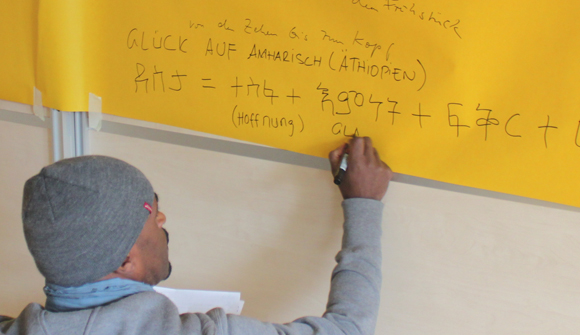 Frühstück
von den Zehen bis zum Kopf
GLÜCK AUF AMHARISCH (ÄTHIOPIEN)
ደስታ = ተስፋ + እምነት + ፍቅር +
(Hoffnung) GLA